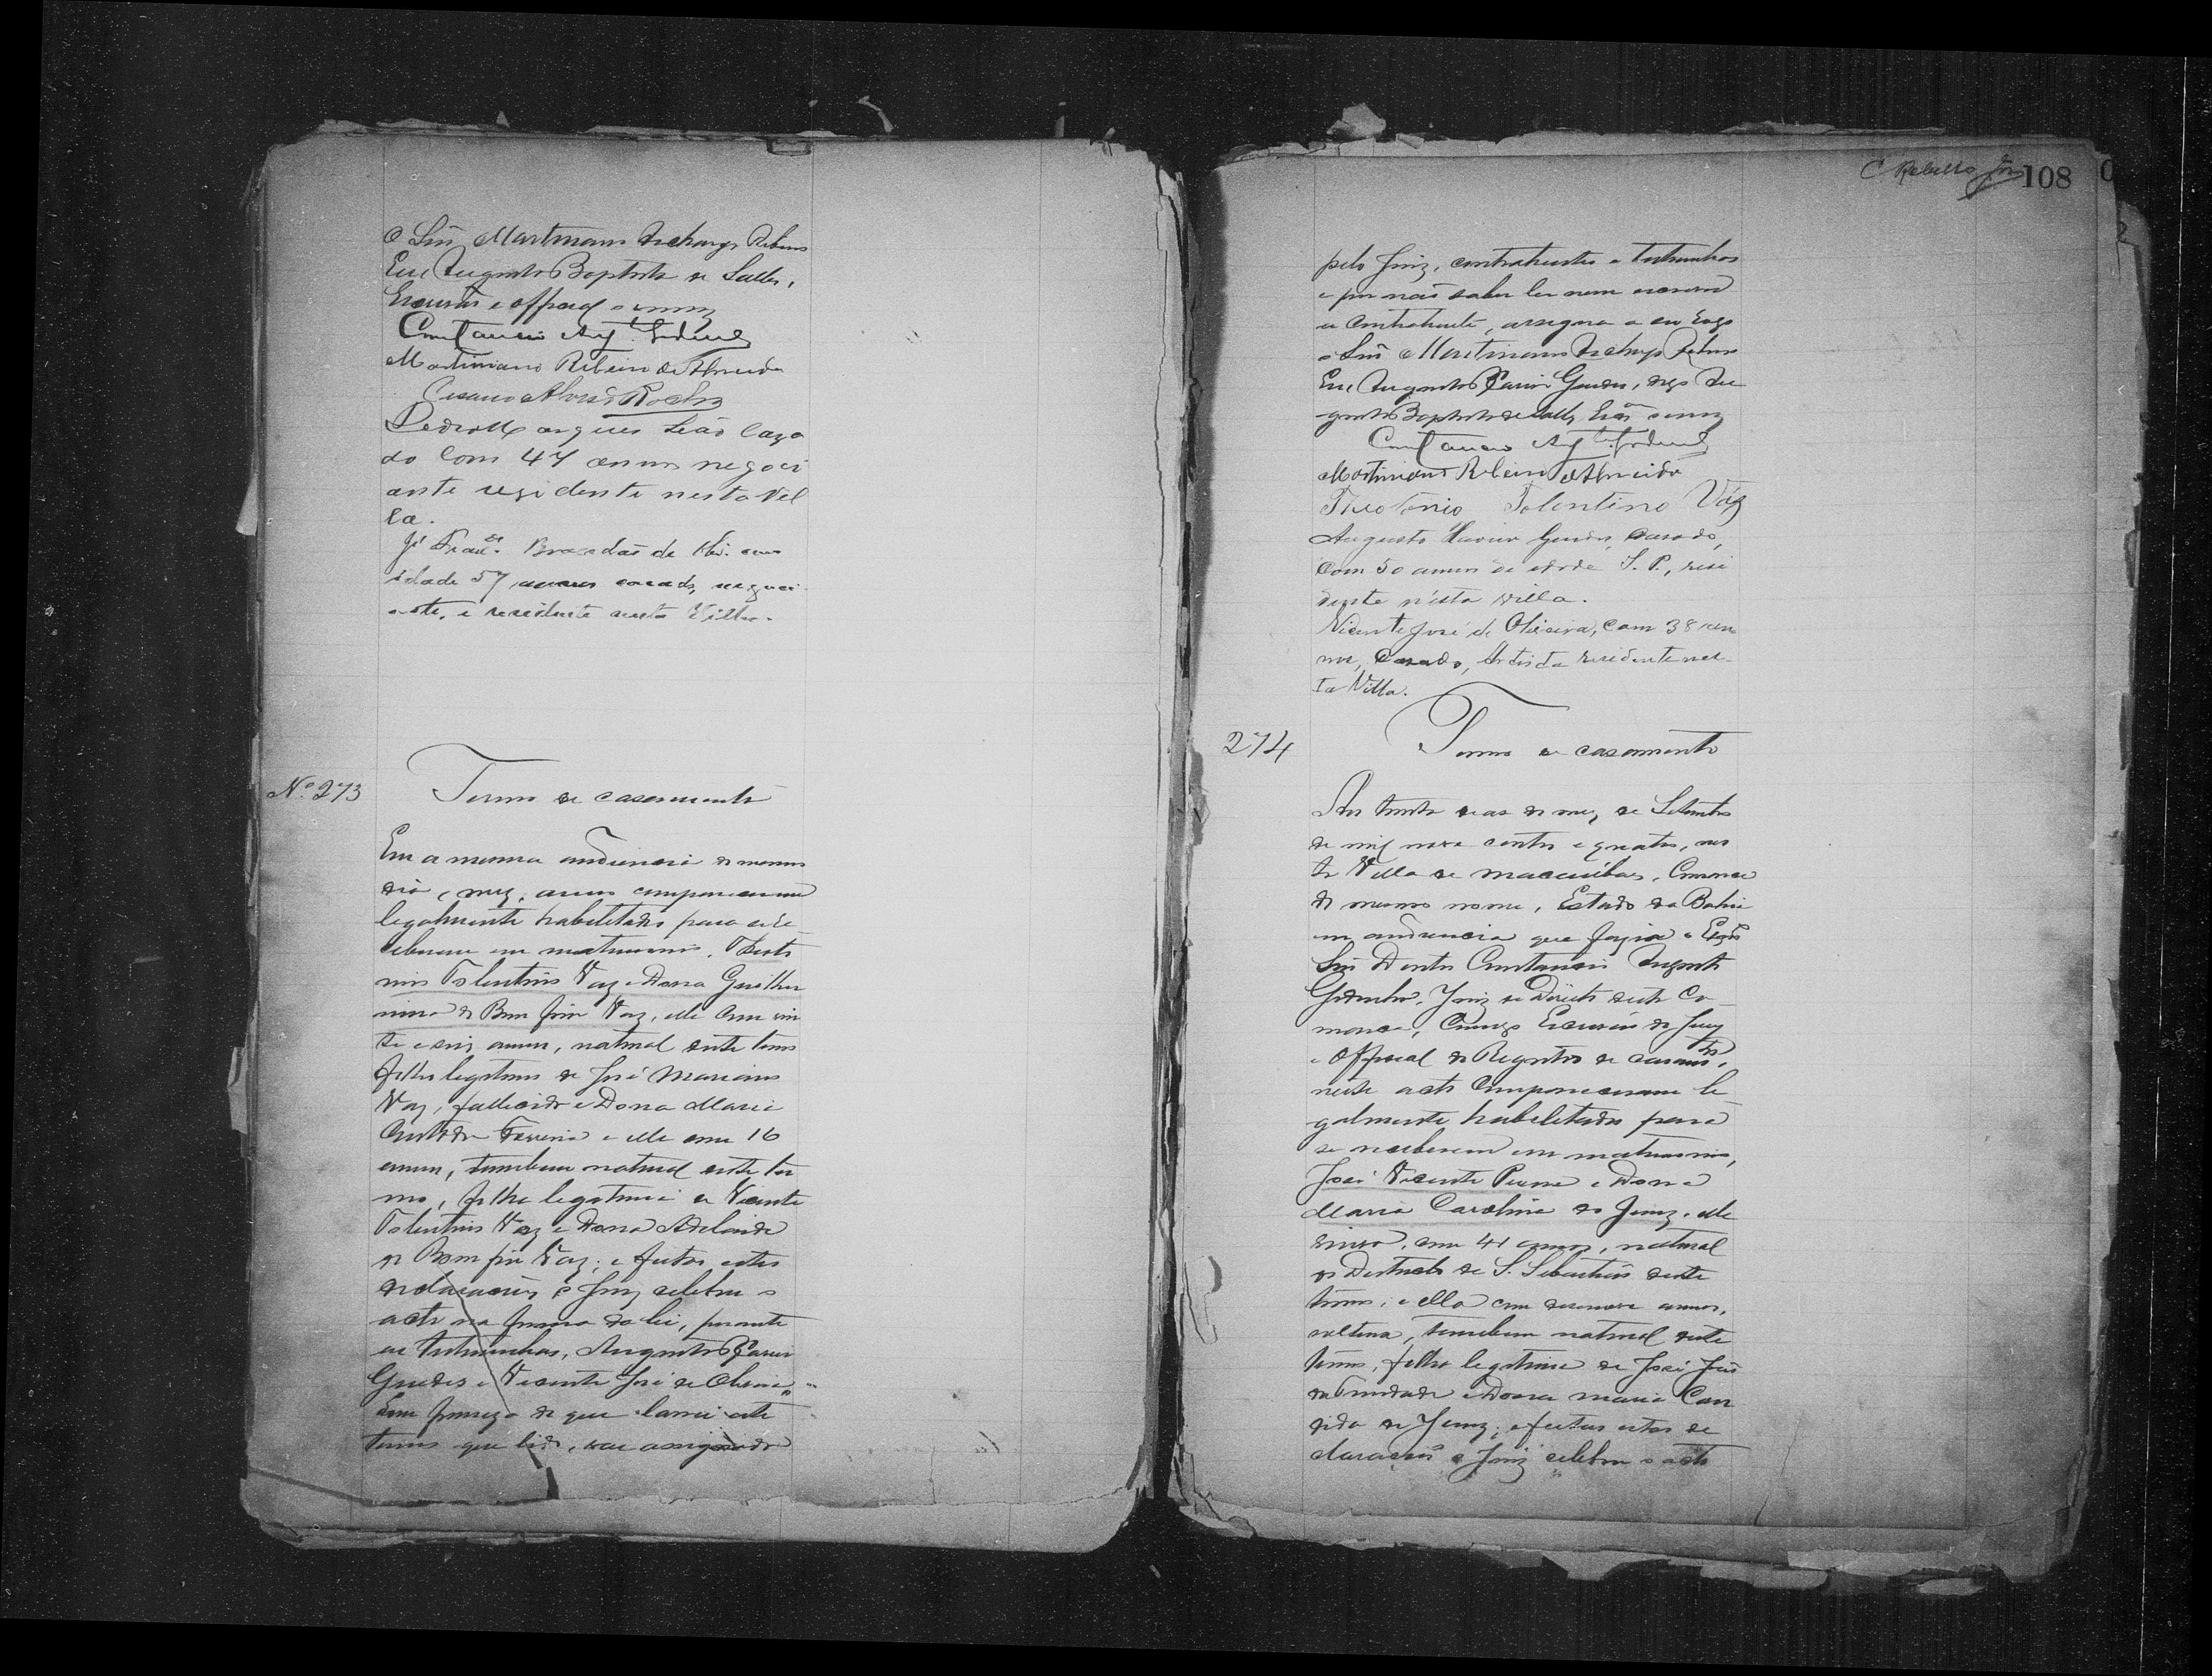 O Snr. Martiniano
Eu, Augusto Baptista de Salles,
Escrivão e official o escrevy
Constancio Augto. Godinho
Martiniano Ribeiro de Almeida
Rocha
Pedro Marques Leão Caza
do Com 47 annos negoci
ante rezidente nesta Vil
la.
Je. Franco. Brandão
idade 57 annos casado, negoci
ante, e residente nesta Villa.
Nº 273
Termo de casamento
Em a mesma audiencia do mesmo
dia, mez, anno compareceram
legalmente habilitados para se re
ceberem em matrimonio, Theoto
nio Tolentino Vaz e Dona Guilher
mina do Bom fim Vaz, elle com vin
te e seis annos, natural deste termo
filho legitimo de José Mariano
Vaz, fallecido e Dona Maria
e ella com 16
annos, tambem natural deste ter
mo, filha legitima de Vicente
Tolentino Vaz e Dona Adelaide
do Bom fim Vaz; e feitas estas
declarações o Juiz celebrou o
acto na forma da lei, perante
as testemunhas, Augusto Xavier
Guedes e Vicente José de Oliveira.
Em firmeza do que lavrei este
termo que lido, vae assignado
C. Rebello Jor. 108
pelo Juiz, contrahentes e testemunhas
e por não saber ler nem escrever
a contrahente, assigna a seu rogo
o Snr. Martiniano
Eu, Augusto Xavier Guedes, digo Au
gusto Baptista de Salles, Escam. o escrevy
Constancio Augto. Godinho
Martiniano Ribeiro de Almeida
Theotonio Tolentino Váz
Augusto Xavier Guedes, casado,
com 50 annos de idade S. P., resi
dente n'esta villa.
Vicente José de Oliveira, com 38 an
nos, Casado, Artista residente nes-
ta Villa.
274
Termo de casamento
Aos trinta dias do mez de Setembro
de mil nove centos e quatro, nes
ta Villa de Macaúbas, Comarca
do mesmo nome, Estado da Bahia
em audiencia que fazia o Exmo.
Snr. Doutor Constancio Augusto
Godinho, Juiz de Direito desta Co
marca, Comigo Escrivão do Jury
e Official do Registro de casamtos,
neste acto Compareceram le
galmente habilitados para
se receberem em matrimonio,
José Vicente e Dona
Maria Carolina de Jesuz, elle
viuvo, com 41 annos, natural
do Districto de S. Sebastião deste
termo; e ella com desenove annos,
solteira, tambem natural deste
termo, filha legitima de José
da Trindade e Dona Maria Can
dida de Jesuz; e feitas estas de
clarações o Juiz celebrou o acto